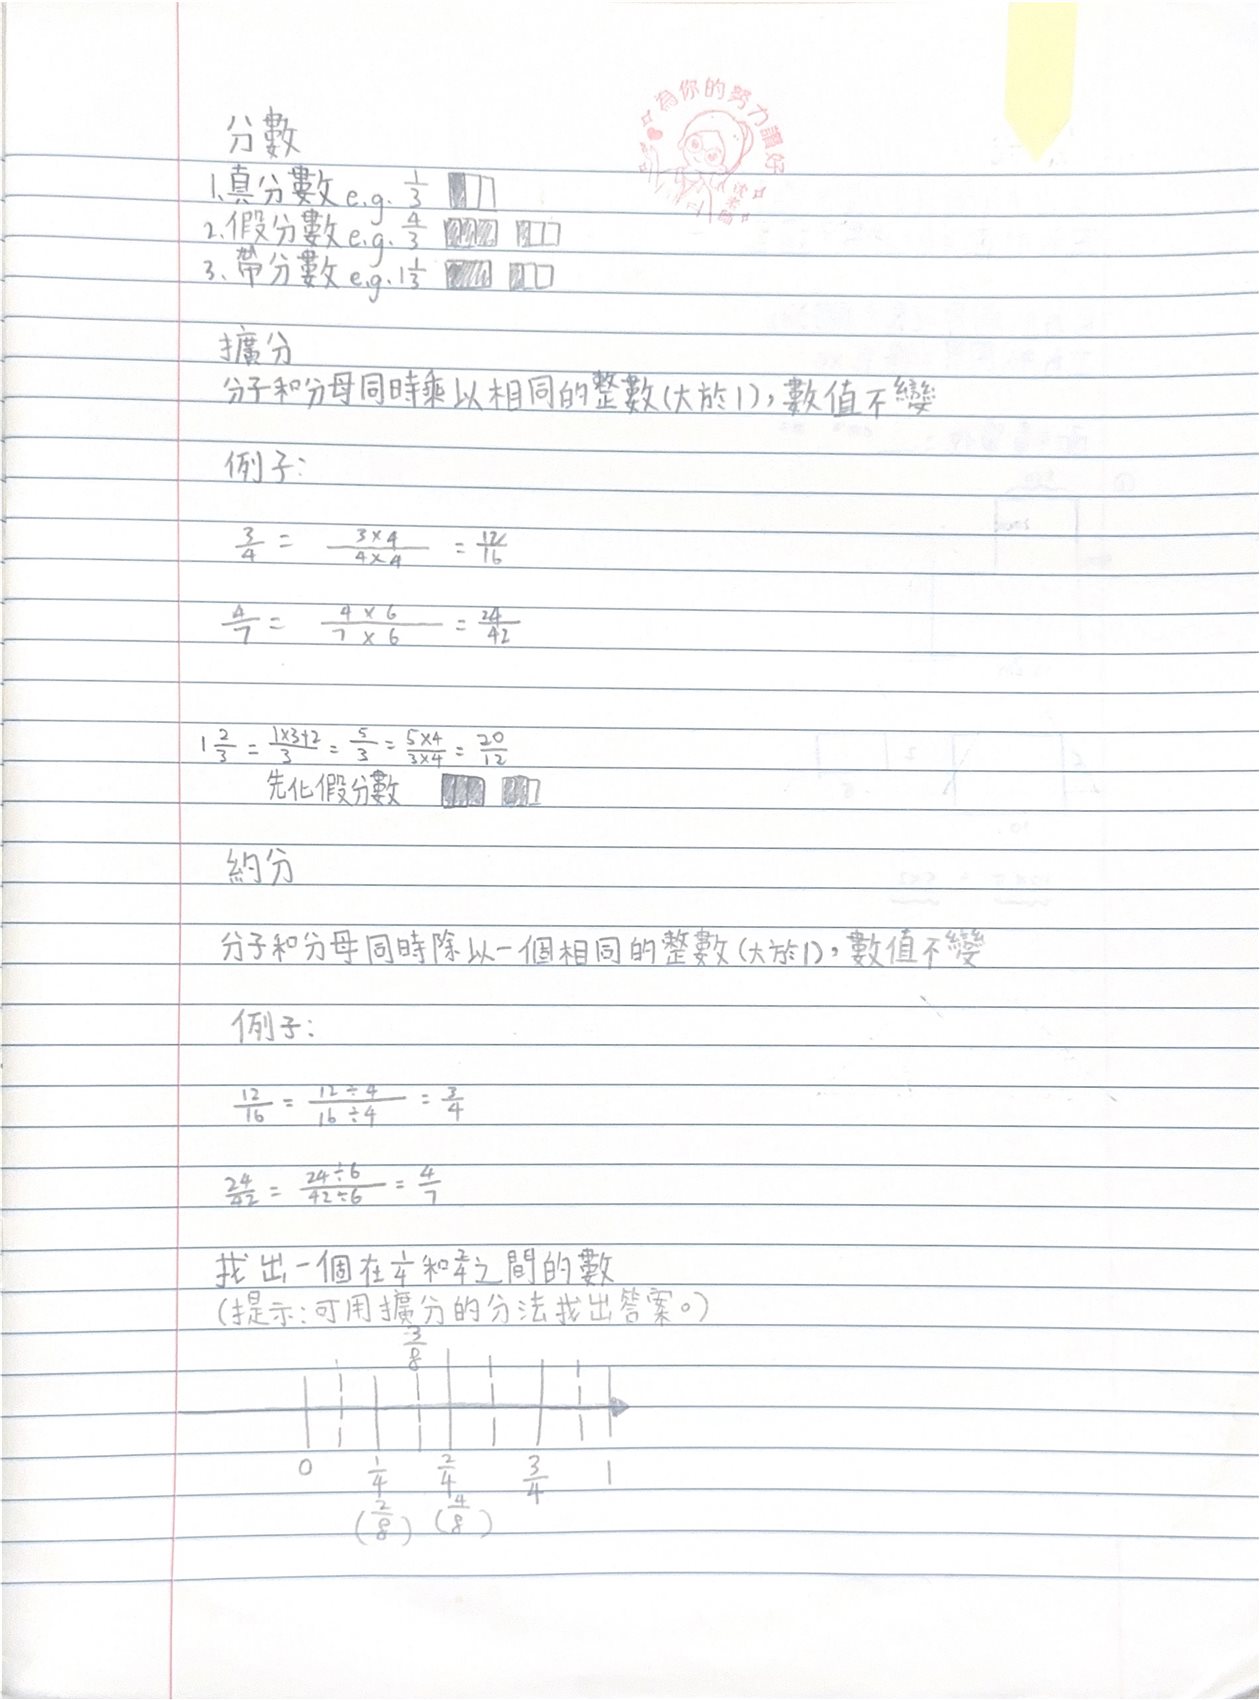 為你的努力讚好
分數
1.真分數 e.g. 1/3
2.假分數 e.g. 4/3
3.帶分數 e.g. 1 1/3
擴分
分子和分母同時乘以相同的整數(大於1),數值不變
例子:
3/4 = 3×4/4×4 = 12/16
4/7 = 4×6/7×6 = 24/42
1 2/3 = 1×3+2/3 = 5/3 = 5×4/3×4 = 20/12
先化假分數
約分
分子和分母同時除以一個相同的整數(大於1),數值不變
例子:
12/16 = 12÷4/16÷4 = 3/4
24/42 = 24÷6/42÷6 = 4/7
找出一個在1/4和2/4之間的數
(提示:可用擴分的分法找出答案。)
3/8
0 1/4 2/4 3/4 1
(2/8) (4/8)